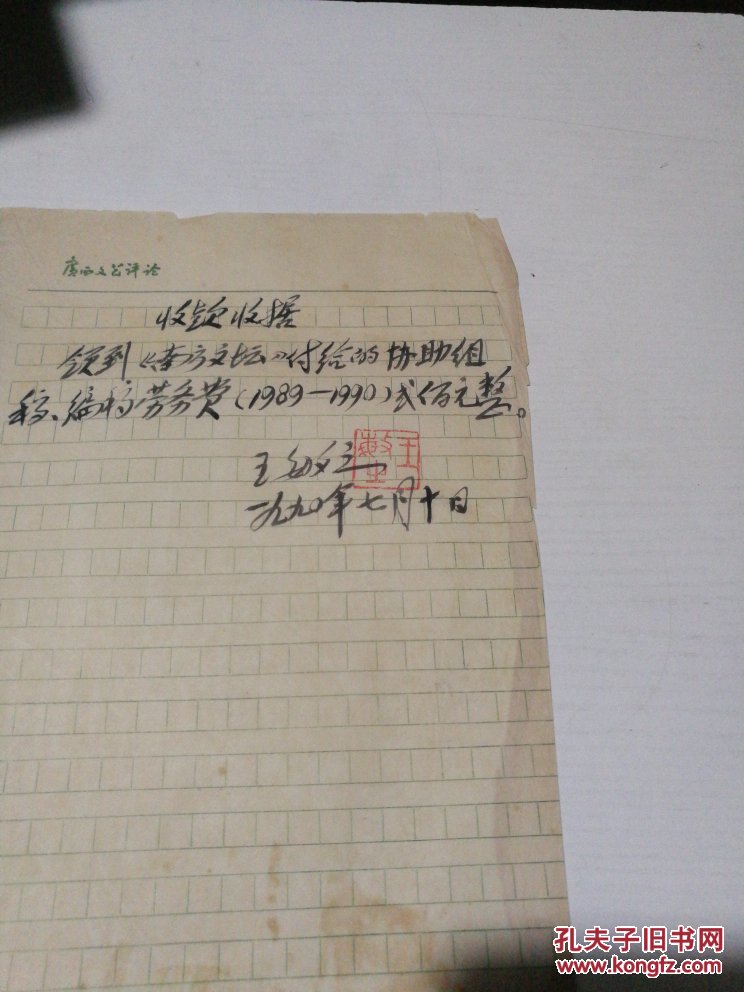 广西文艺评论
收款收据
领到《南方文坛》付给的协助组
稿、编稿劳务费(1989—1990)贰佰元整。
王敏之
王敏之
一九九〇年七月十日
孔夫子旧书网
www.kongfz.com